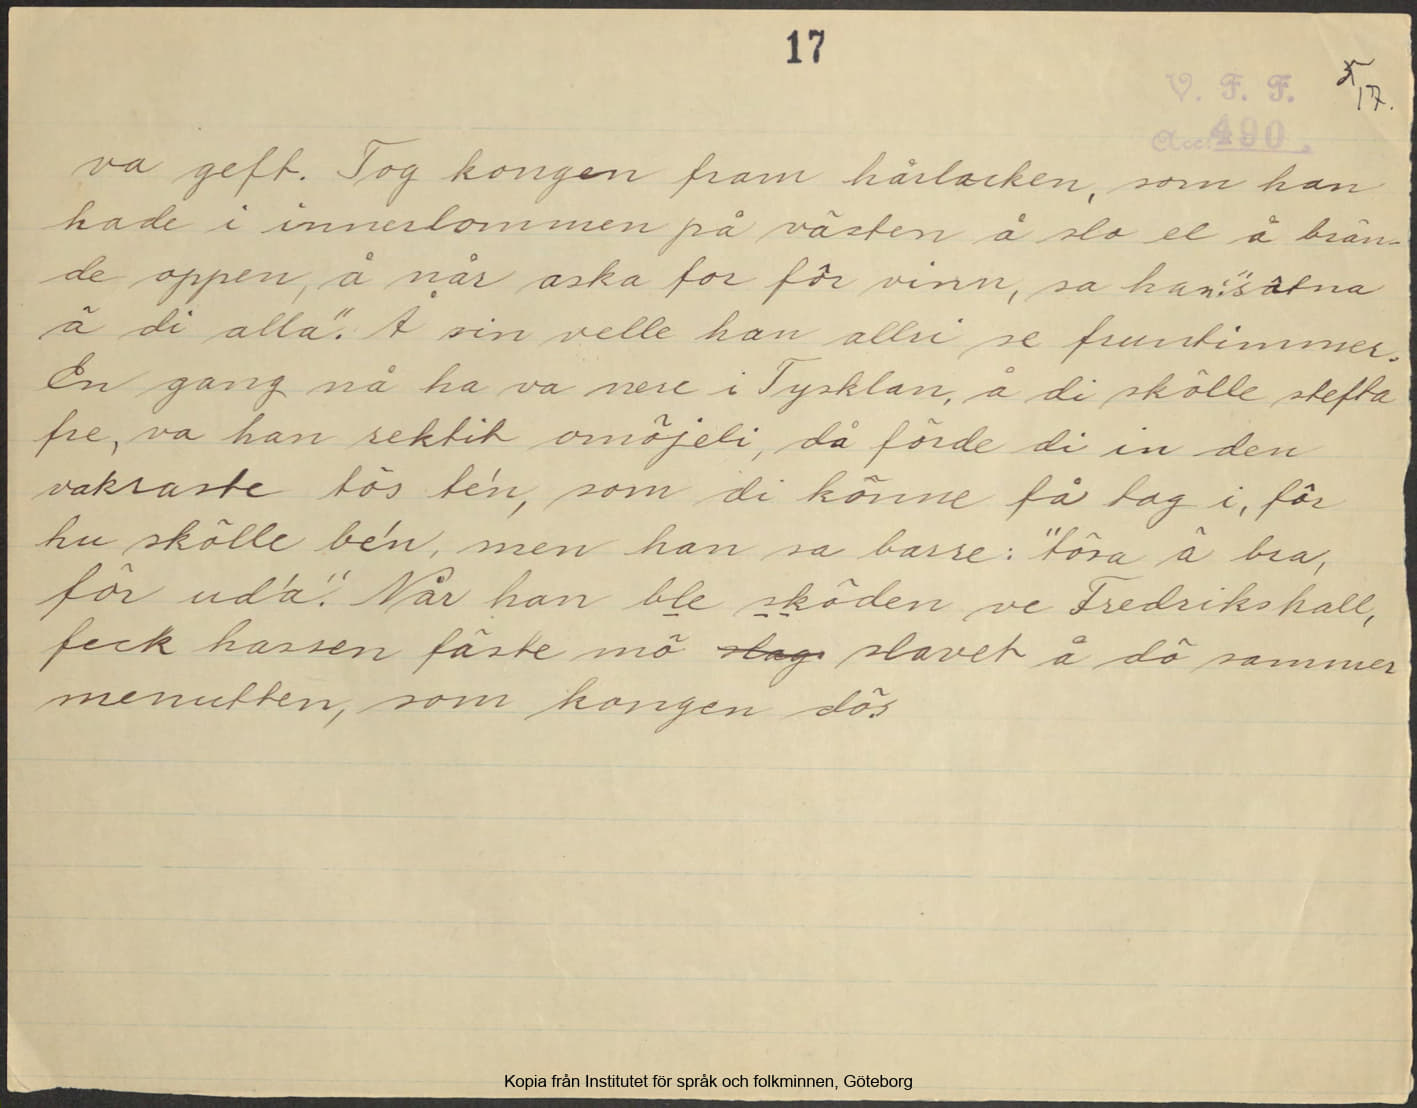 17
V. F. F.
Acc: 490.
17.
va geft. Tog kongen fram hårlocken, som han
hade i innerlommen på västen å slo el å brän-
de oppen, å når aska for för vinn, sa han: "sátna
ä di alla". Å sin velle han allri se fruntimmer.
En gang nå ha va nere i Tysklan, å di skölle stefta
fre, va han rektit omöjeli, då förde di in den
vakraste tös te'n, som di könne få tag i, för
hu skölle be'n, men han sa barre: "tösa ä bra,
för ud'a". Når han ble sköden ve Fredrikshall,
feck hassen fäste mö slag slavet å dö sammer
menutten, som kongen dö.
Kopia från Institutet för språk och folkminnen, Göteborg